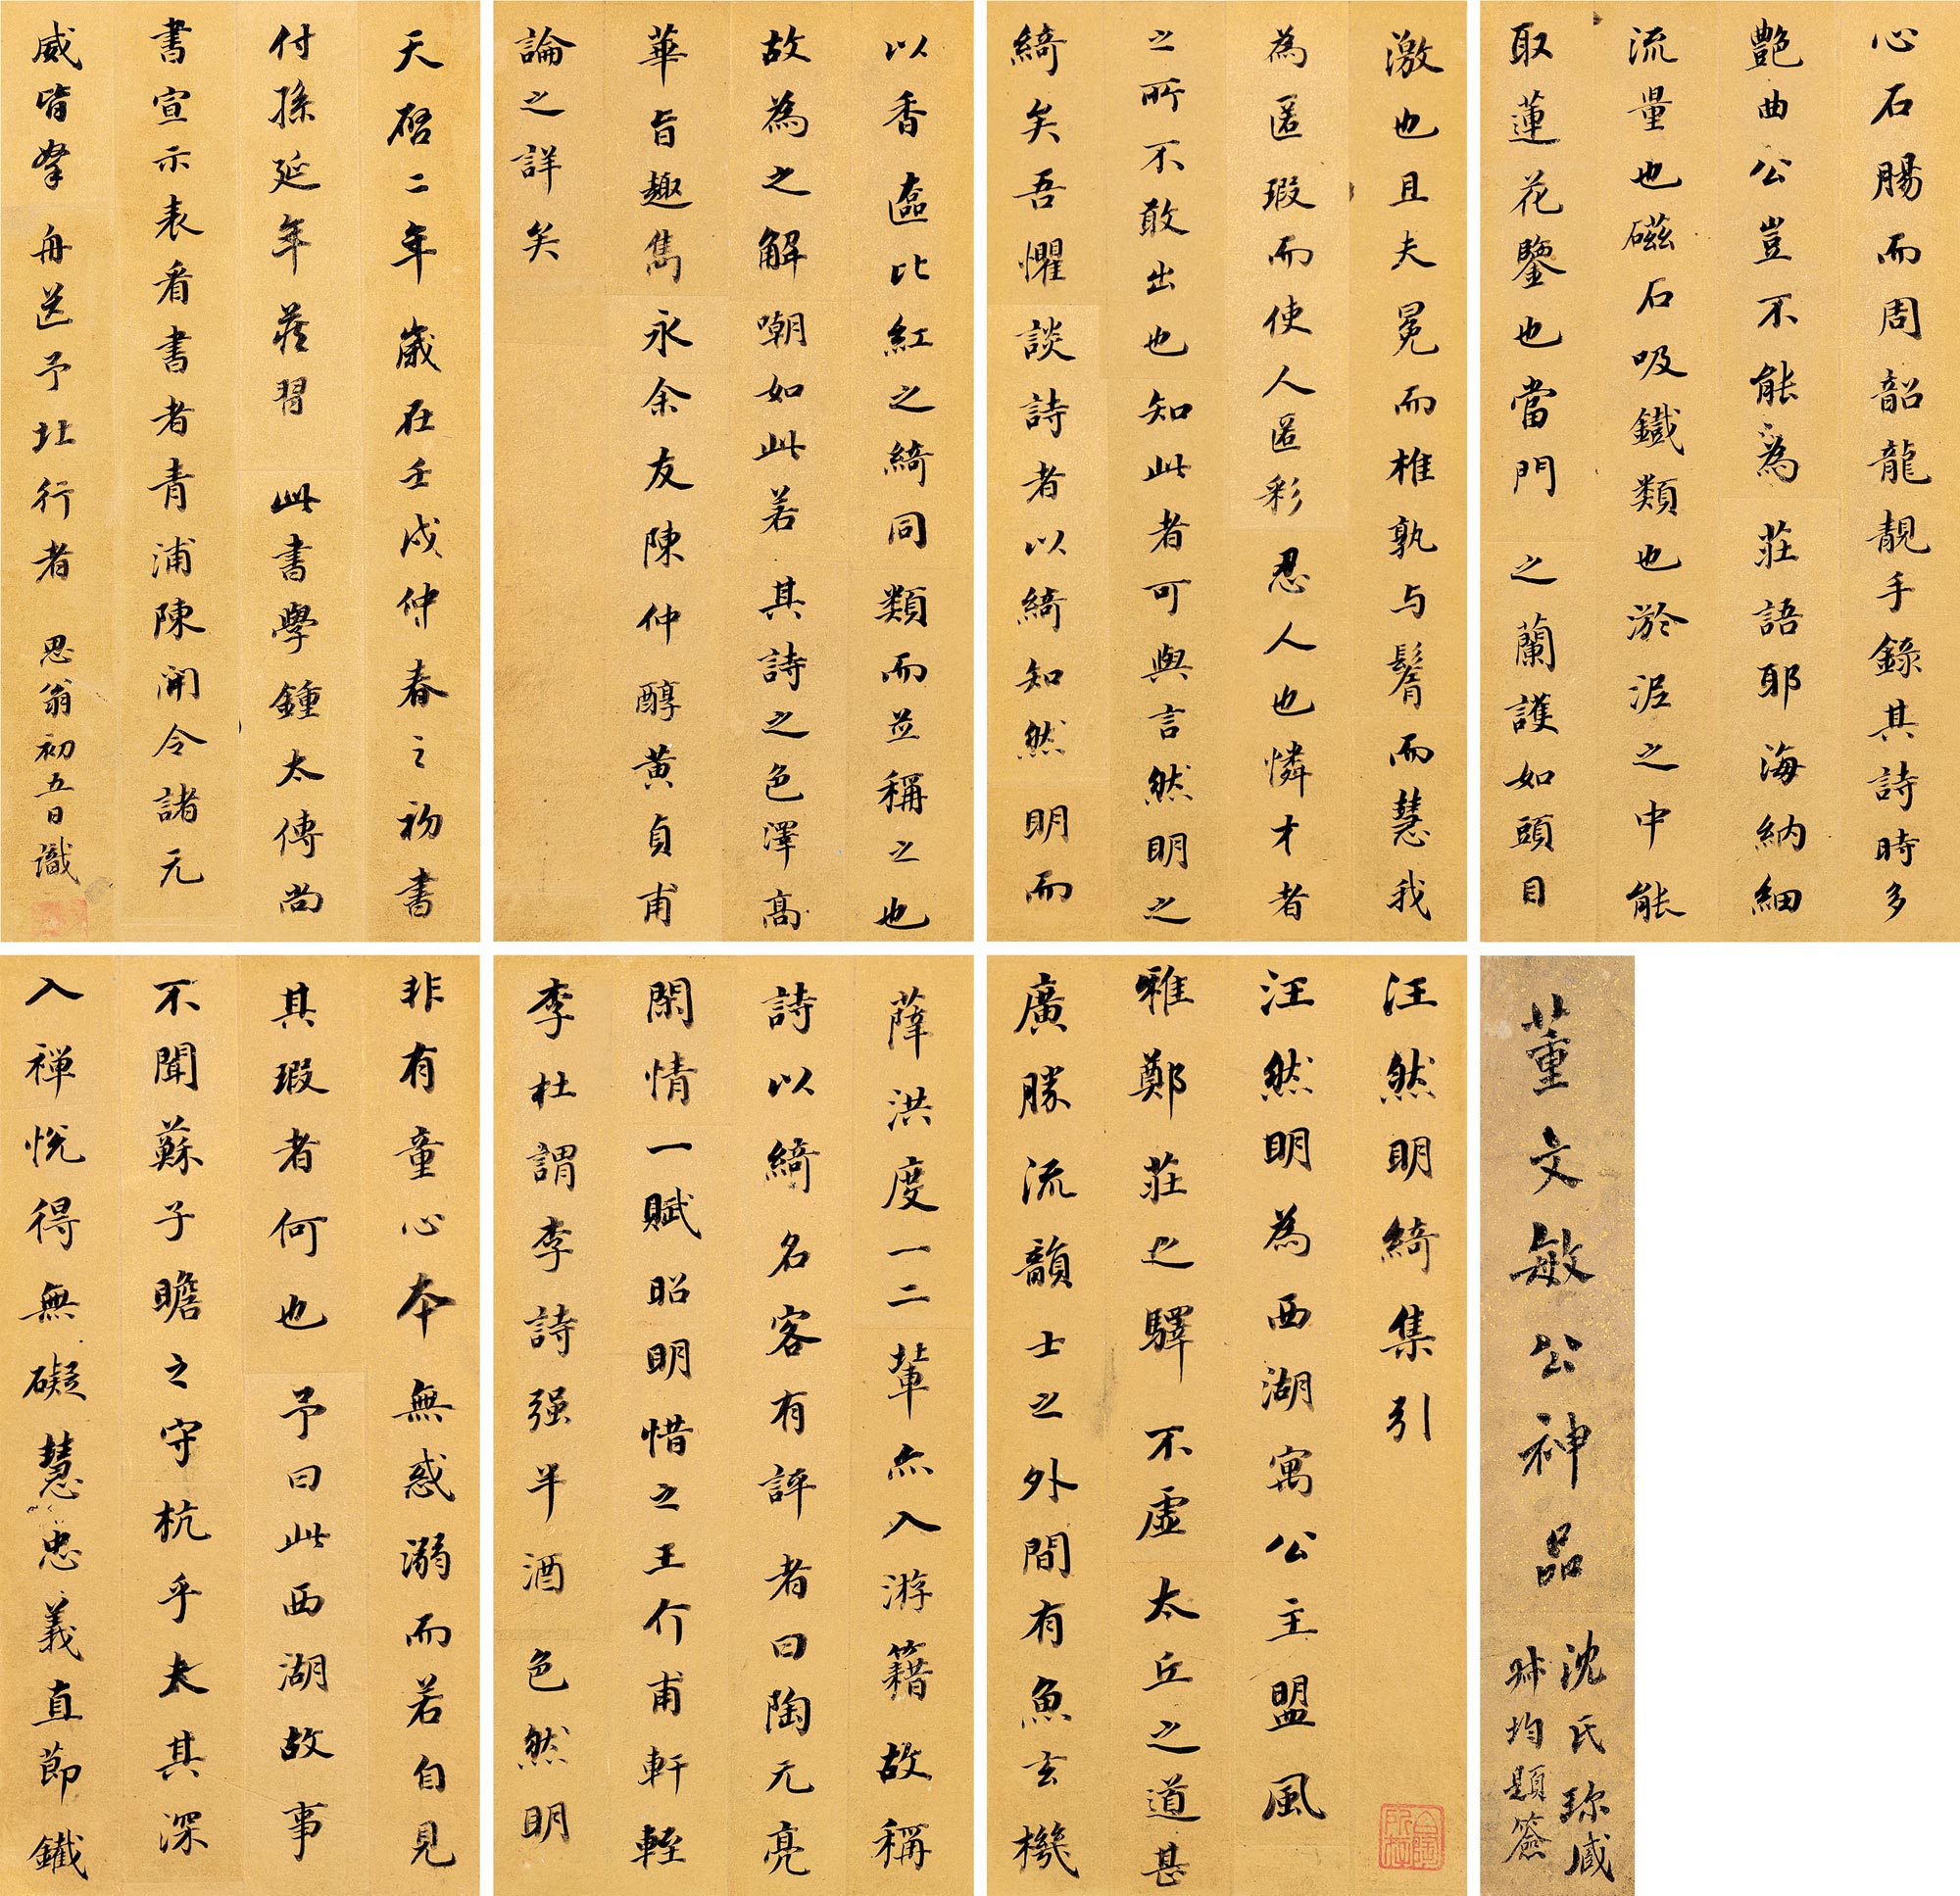 董文敏公神品
沈氏珍藏
叔均題簽
汪然明綺集引
汪然明為西湖寓公主盟風
雅鄭莊之驛不虛太丘之道甚
廣勝流韻士之外間有魚玄機
薛洪度一二輩亦入游籍故稱
詩以綺名客有評者曰陶元亮
閑情一賦昭明惜之王介甫軒輊
李杜謂李詩强半酒色然明
非有童心本無惑溺而若自見
其瑕者何也予曰此西湖故事
不聞蘇子瞻之守杭乎太其深
入禅悅得無礙慧忠義直節鐵
心石腸而周韶龍靚手錄其詩時多
艷曲公豈不能為莊語耶海納細
流量也磁石吸鐵類也淤泥之中能
取蓮花鑒也當門之蘭護如頭目
激也且夫冕而椎孰与髾而慧我
為匿瑕而使人匿彩忍人也憐才者
之所不敢出也知此者可與言然明之
綺矣吾懼談詩者以綺知然明而
以香匳比紅之綺同類而並稱之也
故為之解嘲如此若其詩之色澤高
華旨趣雋永余友陳仲醇黃貞甫
論之詳矣
天啓二年歲在壬戌仲春之初書
付孫延年藏習此書學鍾太傅尚
書宣示表看書者青浦陳開令諸元
威皆拏舟送予北行者思翁初五日識